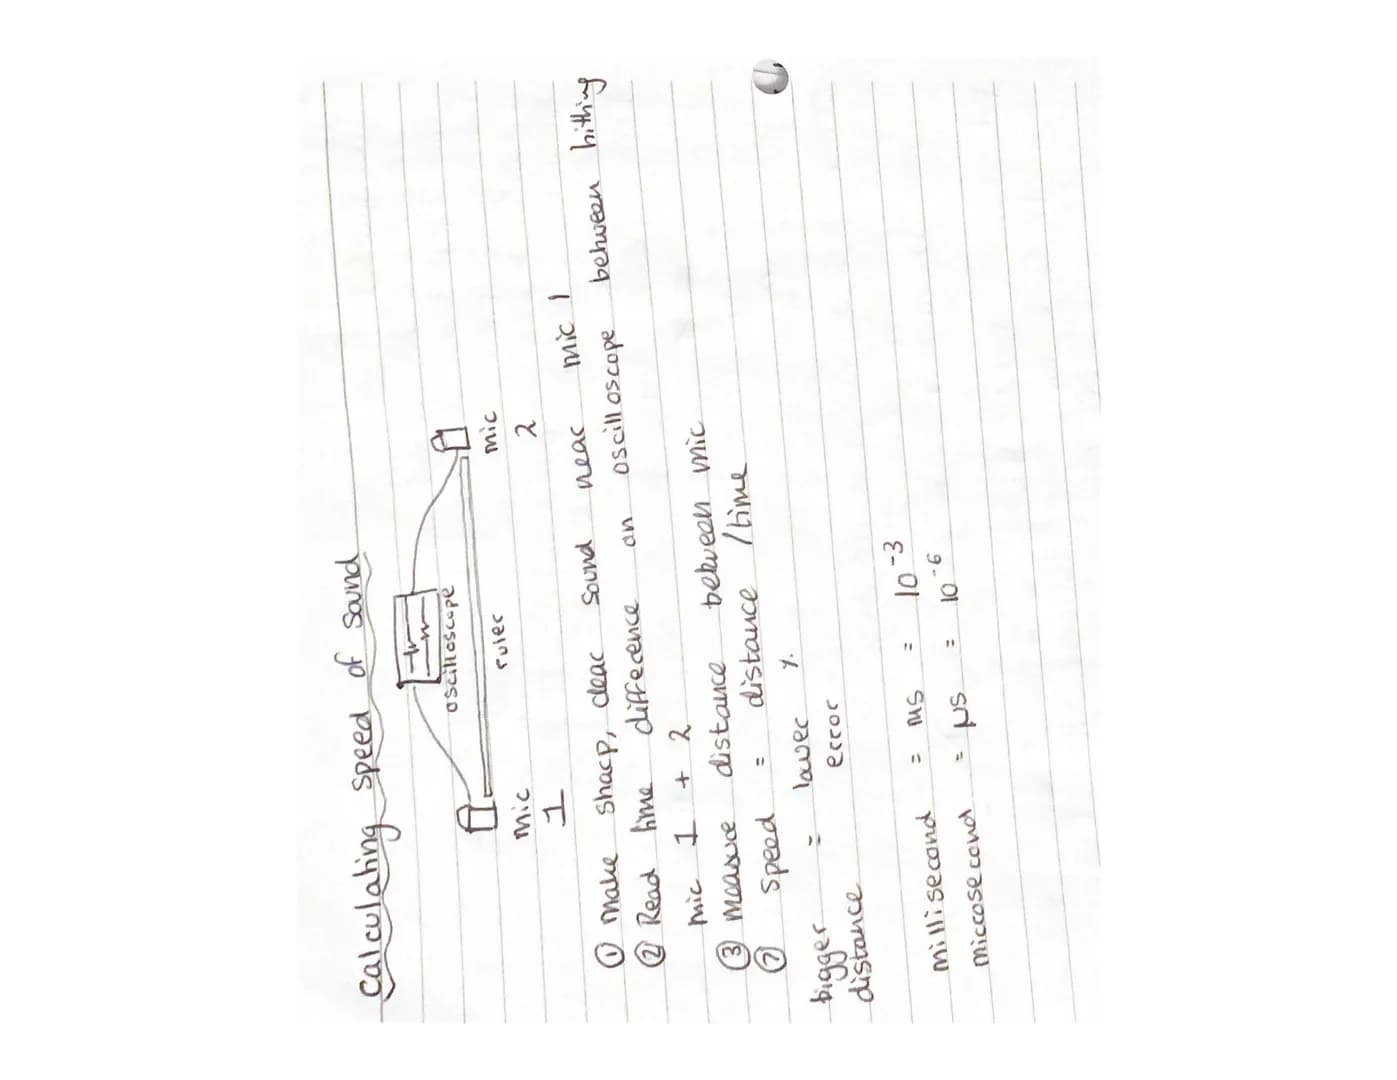 Calculating speed of sound
oscilloscope
ruler
mic
1
mic
2
① make sharp, clear sound near mic 1
② Read time difference on oscilloscope between hitting
mic 1 + 2
③ measure distance between mic
② speed = distance /time
bigger distance = lower % error
millisecond = ms = 10-3
microsecond = µs = 10-6